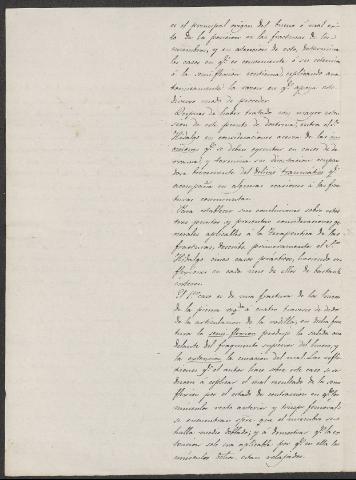 es el principal origen del bueno ó mal exi-
to de la posicion en las fracturas de los
miembros, y en atencion de esto, determina
los casos en qe. es conveniente ó su estencia
ó la semi-flexion continua, esplicando ana-
tomicamente la razon en qe. apoya este
diverso modo de proceder.
Despues de haber tratado con mayor esten-
sion de este punto de doctrina, entra el Sr.
Hidalgo en consideraciones acerca de las
qe. se deben ejecutar en casos de
y termina su disertacion ocupan-
dose brevemente del delirio traumatico qe.
acompaña en algunas ocasiones á las frac-
turas conminutas.
Para establecer sus conclusiones sobre estos
tres puntos y presentar consideraciones ge-
nerales aplicables á la terapeutica de las
fracturas, describe primeramente el Sr.
Hidalgo unos casos practicos, haciendo re-
flexiones en cada uno de ellos de bastante
interes.
El 1er. caso es de una fractura de los huesos
de la pierna á cuatro traveses de dedo
de la articulacion de la rodilla; en dicha frac-
tura la semi-flexion produjo la salida ácia
delante del fragmento superior del hueso, y
la estension la curacion del mal. Las refle-
xiones qe. el autor hace sobre este caso se re-
ducen á esplicar el mal resultado de la semi-
flexion por el estado de contraccion en qe. los
musculos recto anterior y triceps femorales
se encuentran spre. que el miembro se
halla medio doblado; y á demostrar qe. la es-
tension solo era aplicable por qe. en ella los
musculos dichos estan relajados.